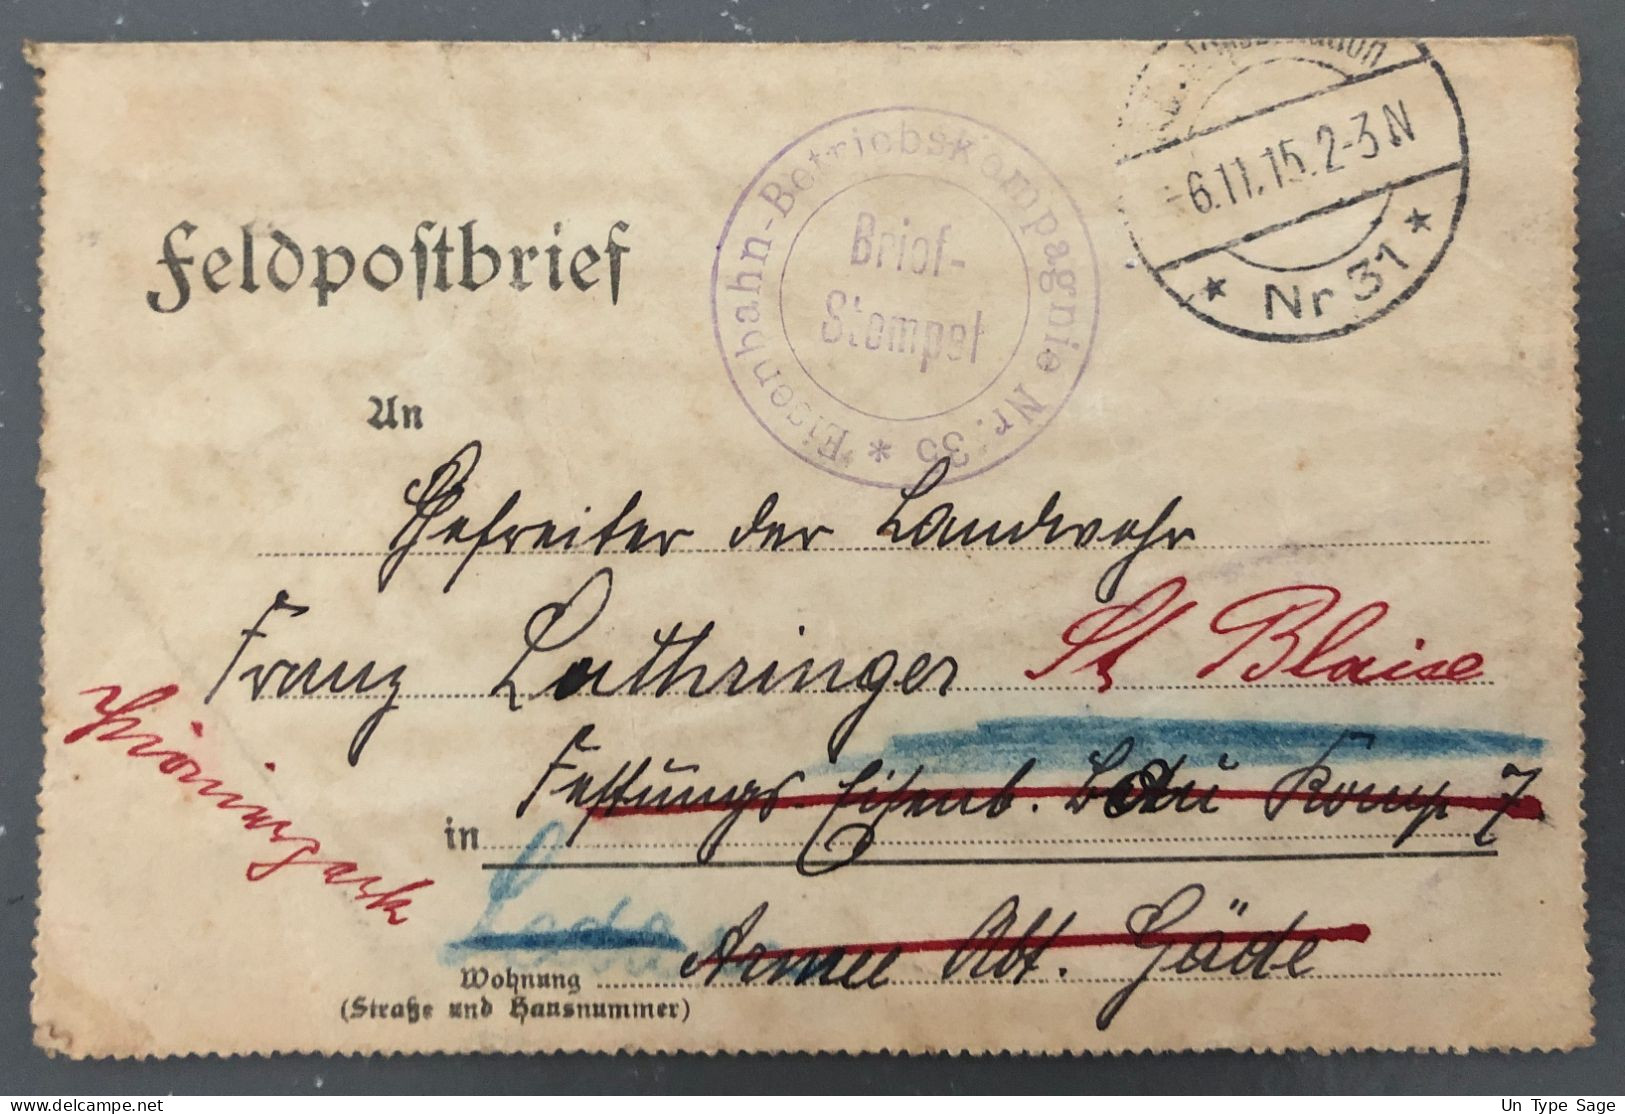 Feldpostbrief
Eisenbahn-Betriebskompagnie Nr. 35 *
Brief-
Stempel
-6.11.15. 2-3 N
* Nr 31 *
An
Gefreiter der Landwehr
Franz Lothringer St Blaise
in Festungs. Eisenb. Bau Komp 7
Armee Abt. Gäde
Wohnung
(Straße und Hausnummer)
Un Type Sage